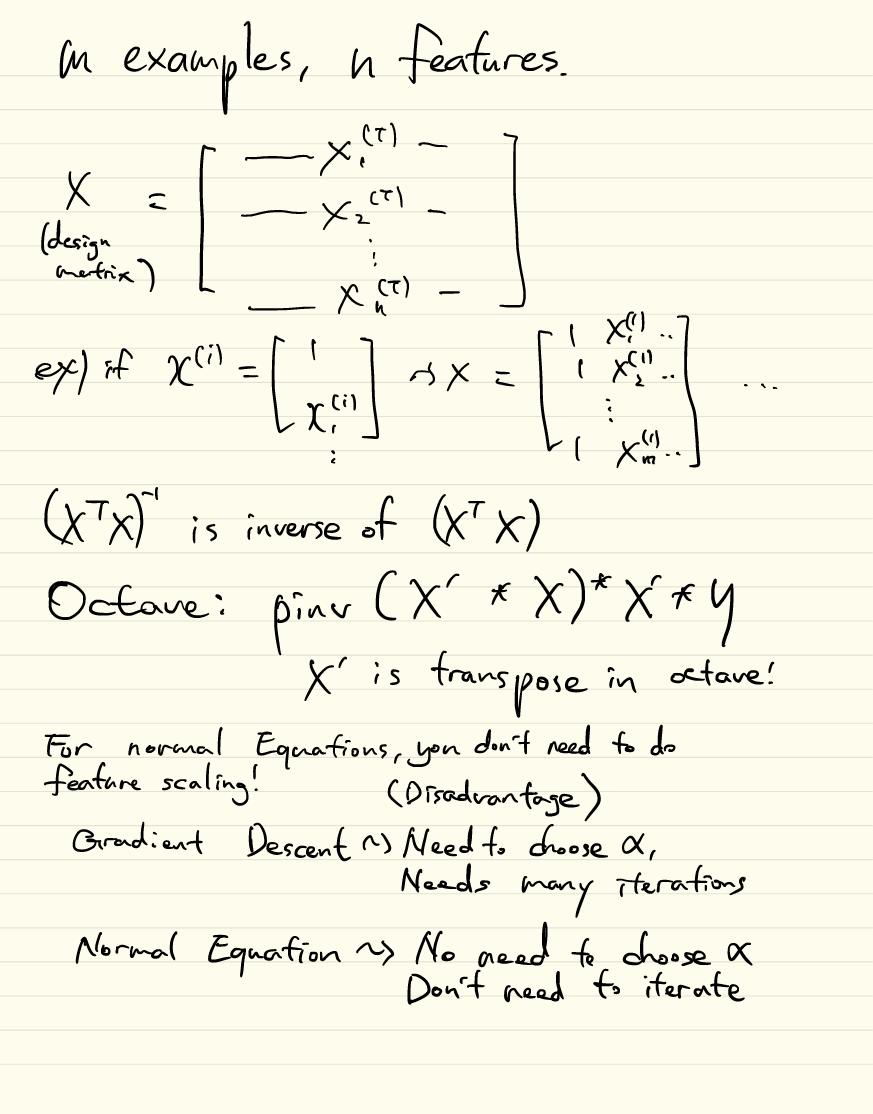 m examples, n features.
X = [ — x₁^(T) —
(design matrix) — x₂^(T) —
⋮
— xₙ^(T) — ]
ex) if x^(i) = [ 1 x₁^(i) ⋮ ] ⇝ X = [ 1 x₁^(1) ..
1 x₂^(1) ..
⋮
1 xₘ^(1) .. ] ...
(XᵀX)⁻¹ is inverse of (XᵀX)
Octave: pinv (X' * X)* X' * y
X' is transpose in octave!
For normal Equations, you don't need to do
feature scaling!
(Disadvantage)
Gradient Descent ⇝ Need to choose α,
Needs many iterations
Normal Equation ⇝ No need to choose α
Don't need to iterate